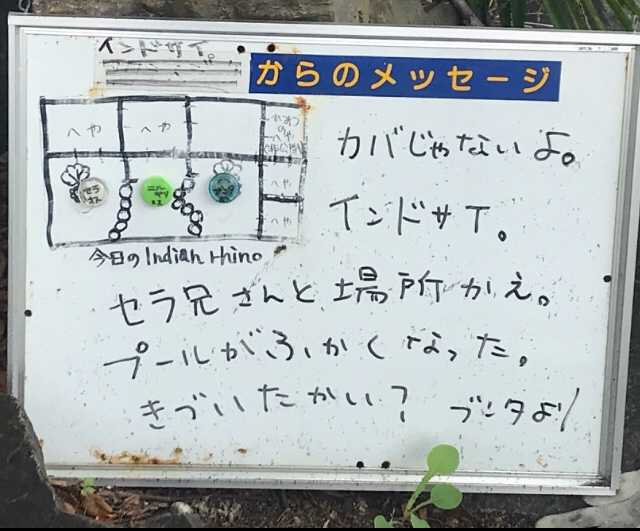 インドサイ
からのメッセージ
へや
へや
へや
へや
セラ
オス
今日のIndian rhino
カバじゃないよ。
インドサイ。
セラ兄さんと場所かえ。
プールがふかくなった。
きづいたかい? ブンタより